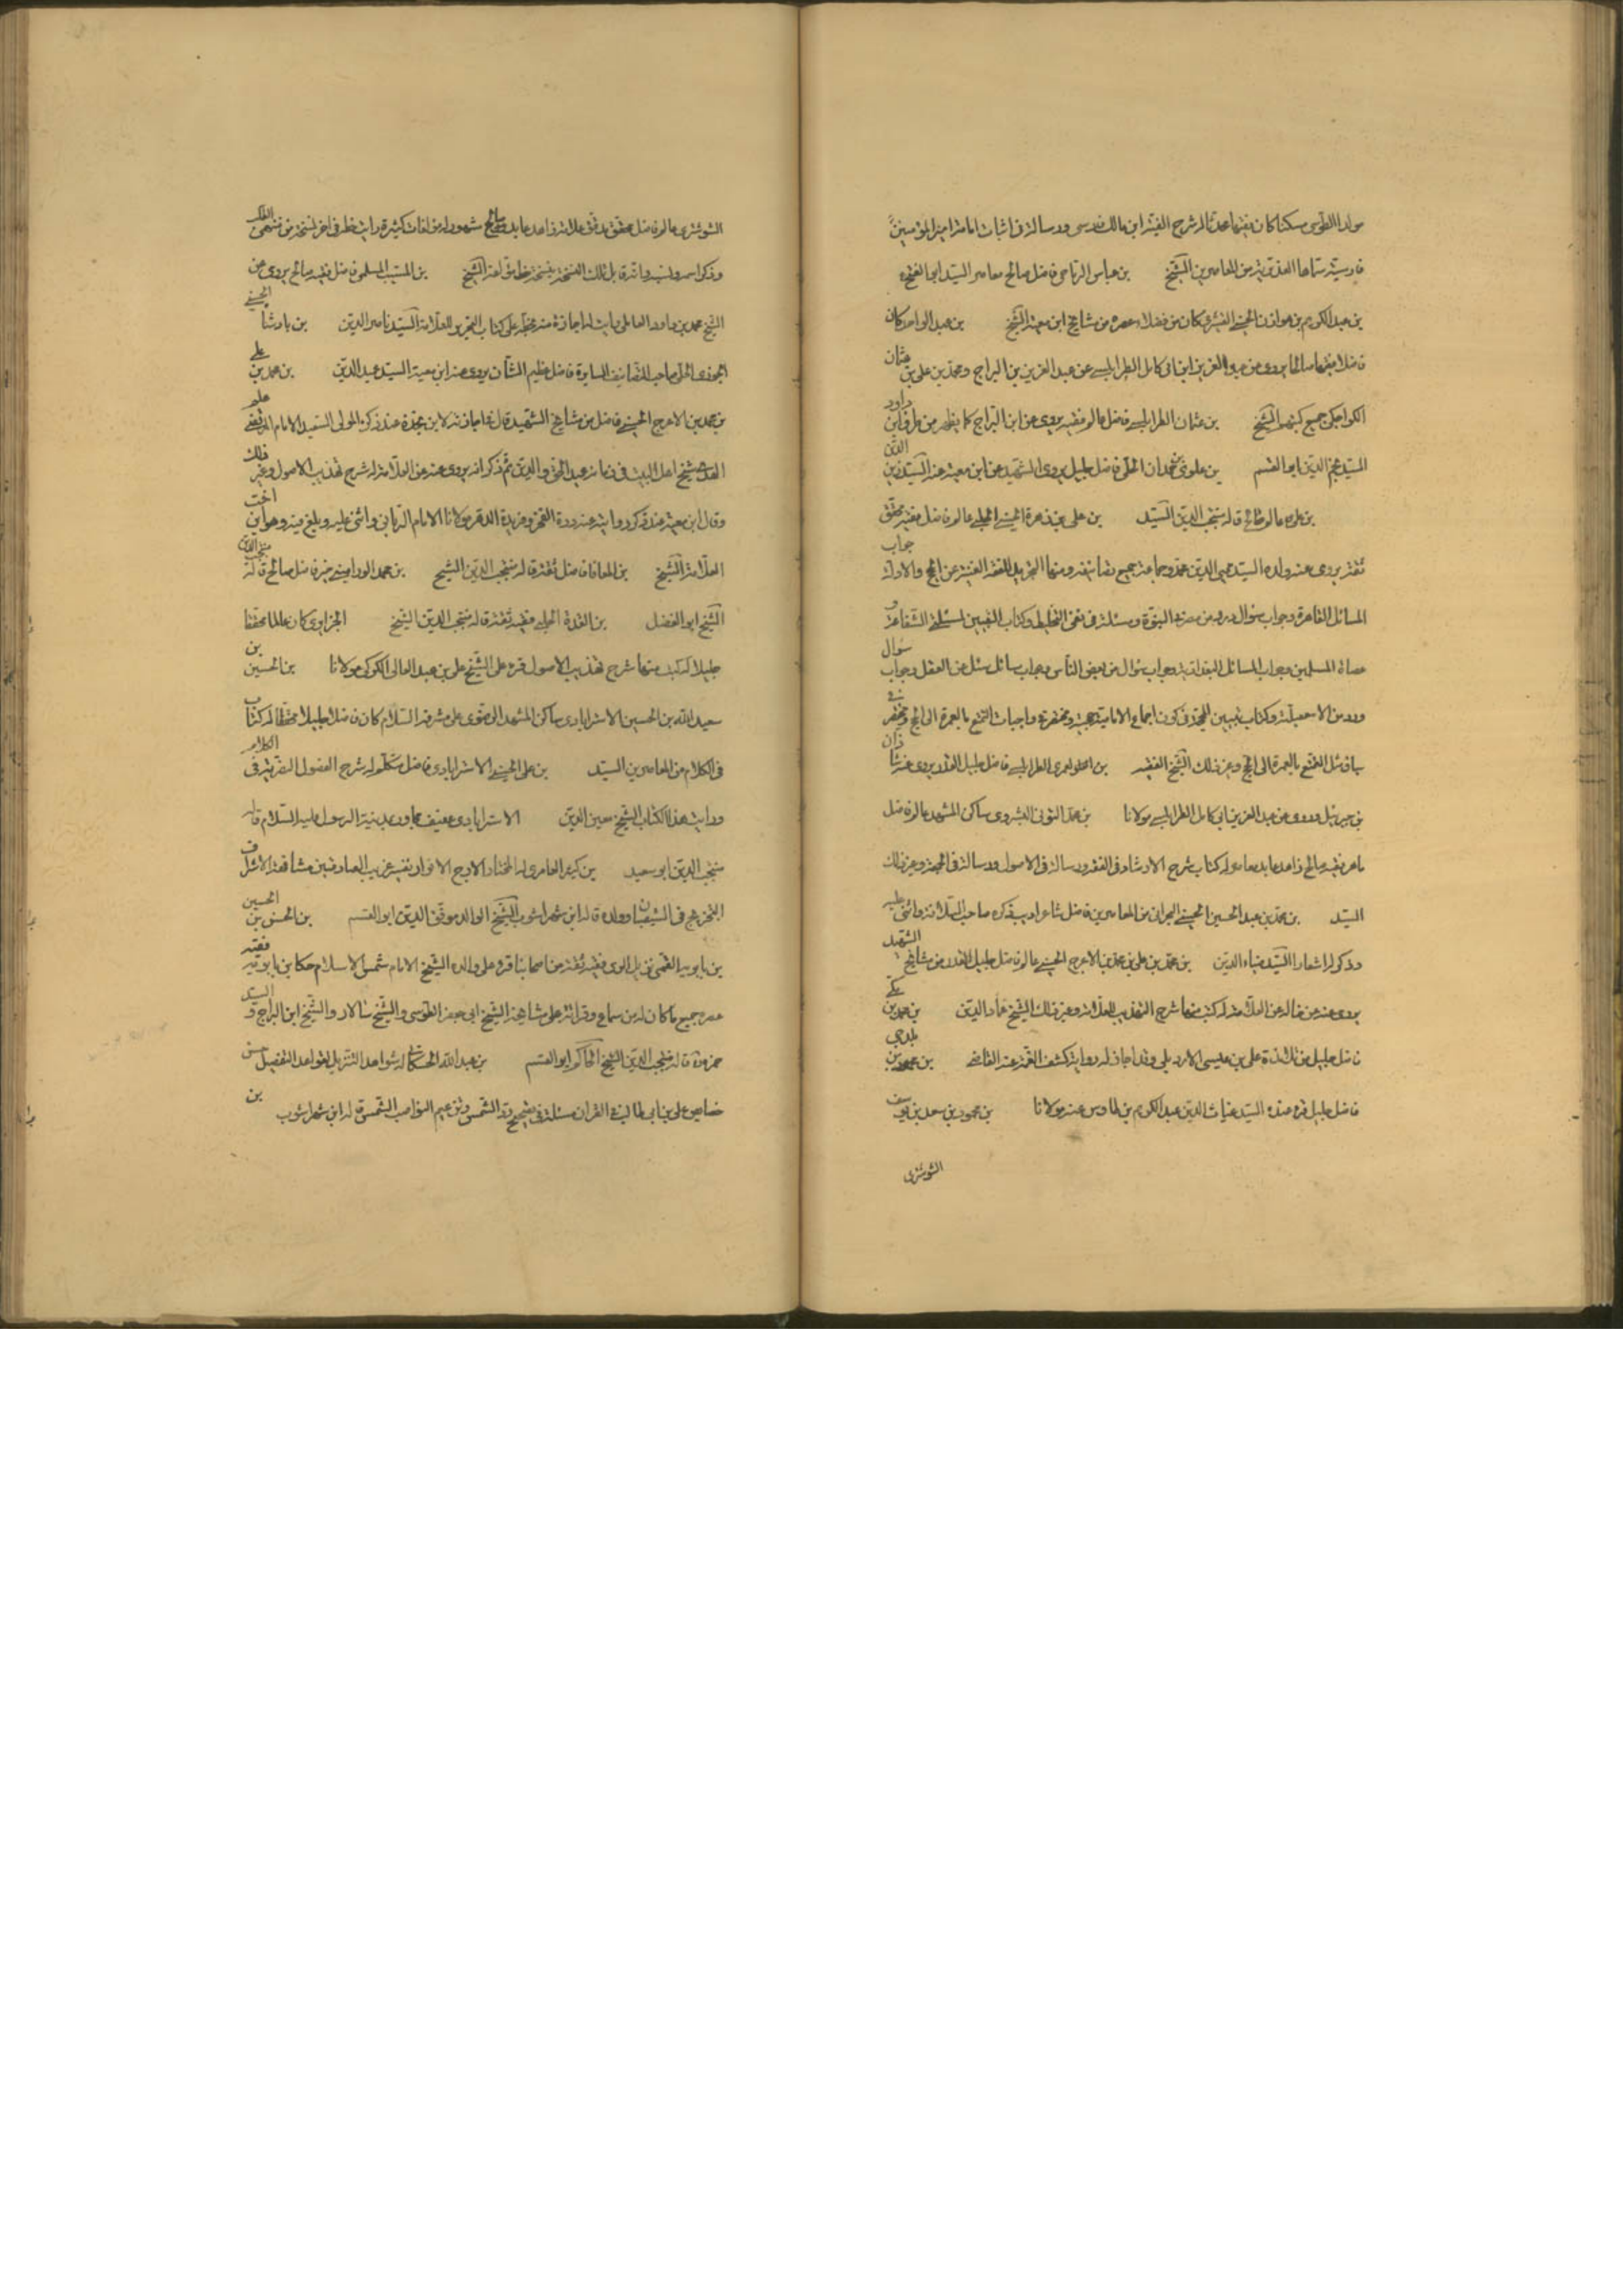 مولدا الطوسي مسكنا كان فقيها محدثا له شرح الفية ابن مالك فارسى ورسالة فى اثبات امامة امير المؤمنين
فارسية سماها من المعاصرين الشيخ بن عباس فاضل صالح معاصر السيد ابو الفتح
بن عبد الكريم بن هوازن الحسنى القشيرى كان من فضلاء عصره من مشايخ ابن معية الشيخ بن عبد الواحد كان
فاضلا فقيها صالحا يروى عن عبد العزيز ابن ابى كامل الطرابلسى عن عبد العزيز بن البراج ومحمد بن على بن عثمان
الكراجكى جميع كتبهم الشيخ بن عثمان الطرابلسى فاضل عالم فقيه يروى عن ابن البراج كما يظهر من ابن داود
السيد نجم الدين ابو القسم بن علوى بن حمدان الحلى فاضل جليل يروى الشهيد عن ابن معية عنه السيد زين الدين
عالم صالح قاله منتجب الدين السيد بن على بن زهرة الحسينى الحلبى عالم فاضل فقيه محقق
ثقة يروى عنه ولده السيد محيى الدين محمد وجماعة جميع تصانيفه ومنها التجريد لفقه الغنية عن الحج والادلة جواب
المسائل القاهرة وجواب سؤال ورد من مصر فى النبوة ومسئلة فى نفى التخليط وكتاب التبيين لمسئلتى الشفاعة و
عصاة المسلمين وجواب المسائل البغدادية وجواب سؤال من بعض الناس وجواب سائل سئل عن العقل وجواب سؤال
ورد من الاسمعيلية وكتاب تبيين المحجة فى كون اجماع الامامية حجة ومختصر فى واجبات التمتع بالعمرة الى الحج ومختصر فى
سياق التمتع بالعمرة الى الحج وغير ذلك الشيخ الفقيه بن العمرى الطرابلسى فاضل جليل القدر يروى عنه شاذان
بن جبرئيل ويروى عن عبد العزيز بن ابى كامل الطرابلسى مولانا بن محمد التونى البشروى ساكن المشهد عالم فاضل
ماهر فقيه صالح زاهد عابد معاصر له كتاب شرح الارشاد فى الفقه ورسالة فى الاصول ورسالة فى الجمعة وغير ذلك
السيد بن محمد بن عبد الحسين الحسينى البحرانى من المعاصرين فاضل شاعر اديب ذكره صاحب السلافة واثنى عليه
وذكر له اشعارا السيد ضياء الدين بن محمد بن على بن محمد بن الاعرج الحسينى عالم فاضل جليل القدر من مشايخ الشهيد
يروى عنه عن خاله عن العلامة له كتب منها شرح التهذيب للعلامة وغير ذلك الشيخ عماد الدين بن محمد بن مكى
فاضل جليل من تلامذة على بن عيسى الاربلى وقد اجاز له رواية كشف الغمة عنه القاضى بن محمود بن بلدجى
فاضل جليل قرء عنده السيد غياث الدين عبد الكريم بن طاوس عنه مولانا بن محمود بن سعد بن يوسف
الشوشترى
الشوشترى عالم فاضل محقق مدقق علامة زاهد عابد صالح مشهور له مؤلفات كثيرة رايت خطه فى اخر نسخة من منتهى المطلب
وذكر اسمه ونسبه وانه قابل تلك النسخة بنسخة خط مؤلفه الشيخ بن المسيب المسلمى فاضل فقيه صالح يروى عن
الشيخ محمد بن داود العاملى رايت له اجازة منه بخطه على كتاب التحرير للعلامة السيد ناصر الدين بن بادشا الحسينى
الجعفرى الحلى صاحب التصانيف السايرة فاضل عظيم الشان يروى عنه ابن معية السيد عميد الدين بن محمد بن على
بن محمد بن الاعرج الحسينى فاضل من مشايخ الشهيد قال فى اجازته لابن نجدة عند ذكره المولى السعيد الامام المرتضى علم
الهدى شيخ اهل البيت فى زمانه عميد الحق والدين ثم ذكر انه يروى عنه عن العلامة له شرح تهذيب الاصول وغير ذلك
وقال ابن معية عند ذكر روايته عنه درة الفخر وفريدة الدهر مولانا الامام الربانى واثنى عليه وبلغ فيه وهو ابن اخت
العلامة الشيخ بن المعافا فاضل ثقة قاله منتجب الدين الشيخ بن محمد الورامينى خير فاضل صالح قاله منتجب الدين
الشيخ ابو الفضل بن الغدة الحلبى فقيه ثقة قاله منتجب الدين الشيخ الجزايرى كان عالما محققا
جليلا له كتب منها شرح تهذيب الاصول قرء على الشيخ على بن عبد العالى الكركى مولانا بن الحسين بن
سعيد الله بن الحسين الاسترابادى ساكن المشهد الرضوى على مشرفه السلام كان فاضلا جليلا محققا له كتاب
فى الكلام من المعاصرين السيد بن على الحسينى الاسترابادى فاضل متكلم له شرح الفصول النصيرية فى الكلام
ورايت هذا الكتاب الشيخ معين الدين الاسترابادى عفيف مجاور بمدينة الرسول عليه السلام قاله
منتجب الدين ابو سعيد بن كثير العامرى له المختار الاوج الانوار تفسير غريب الصادقين مشافهة الاشل ف
الشيخ الوالد موفق الدين ابو القسم بن الحسن بن الحسين
بن بابويه القمى نزيل الرى فقيه ثقة من اصحابنا قرء على والده الشيخ الامام شمس الاسلام حسكا بن بابويه فقيه
عصره جميع ما كان له من سماع وقراءة على مشايخه الشيخ ابى جعفر الطوسى والشيخ سالار والشيخ ابن البراج والسيد
حمزة قاله منتجب الدين الشيخ الحاكم ابو القسم بن عبد الله الحسكانى له شواهد التنزيل لقواعد التفضيل حسن
خصايص على بن ابى طالب فى القران مسئلة فى تصحيح رد الشمس وترغيم النواصب الشمس قاله ابن شهراشوب بن